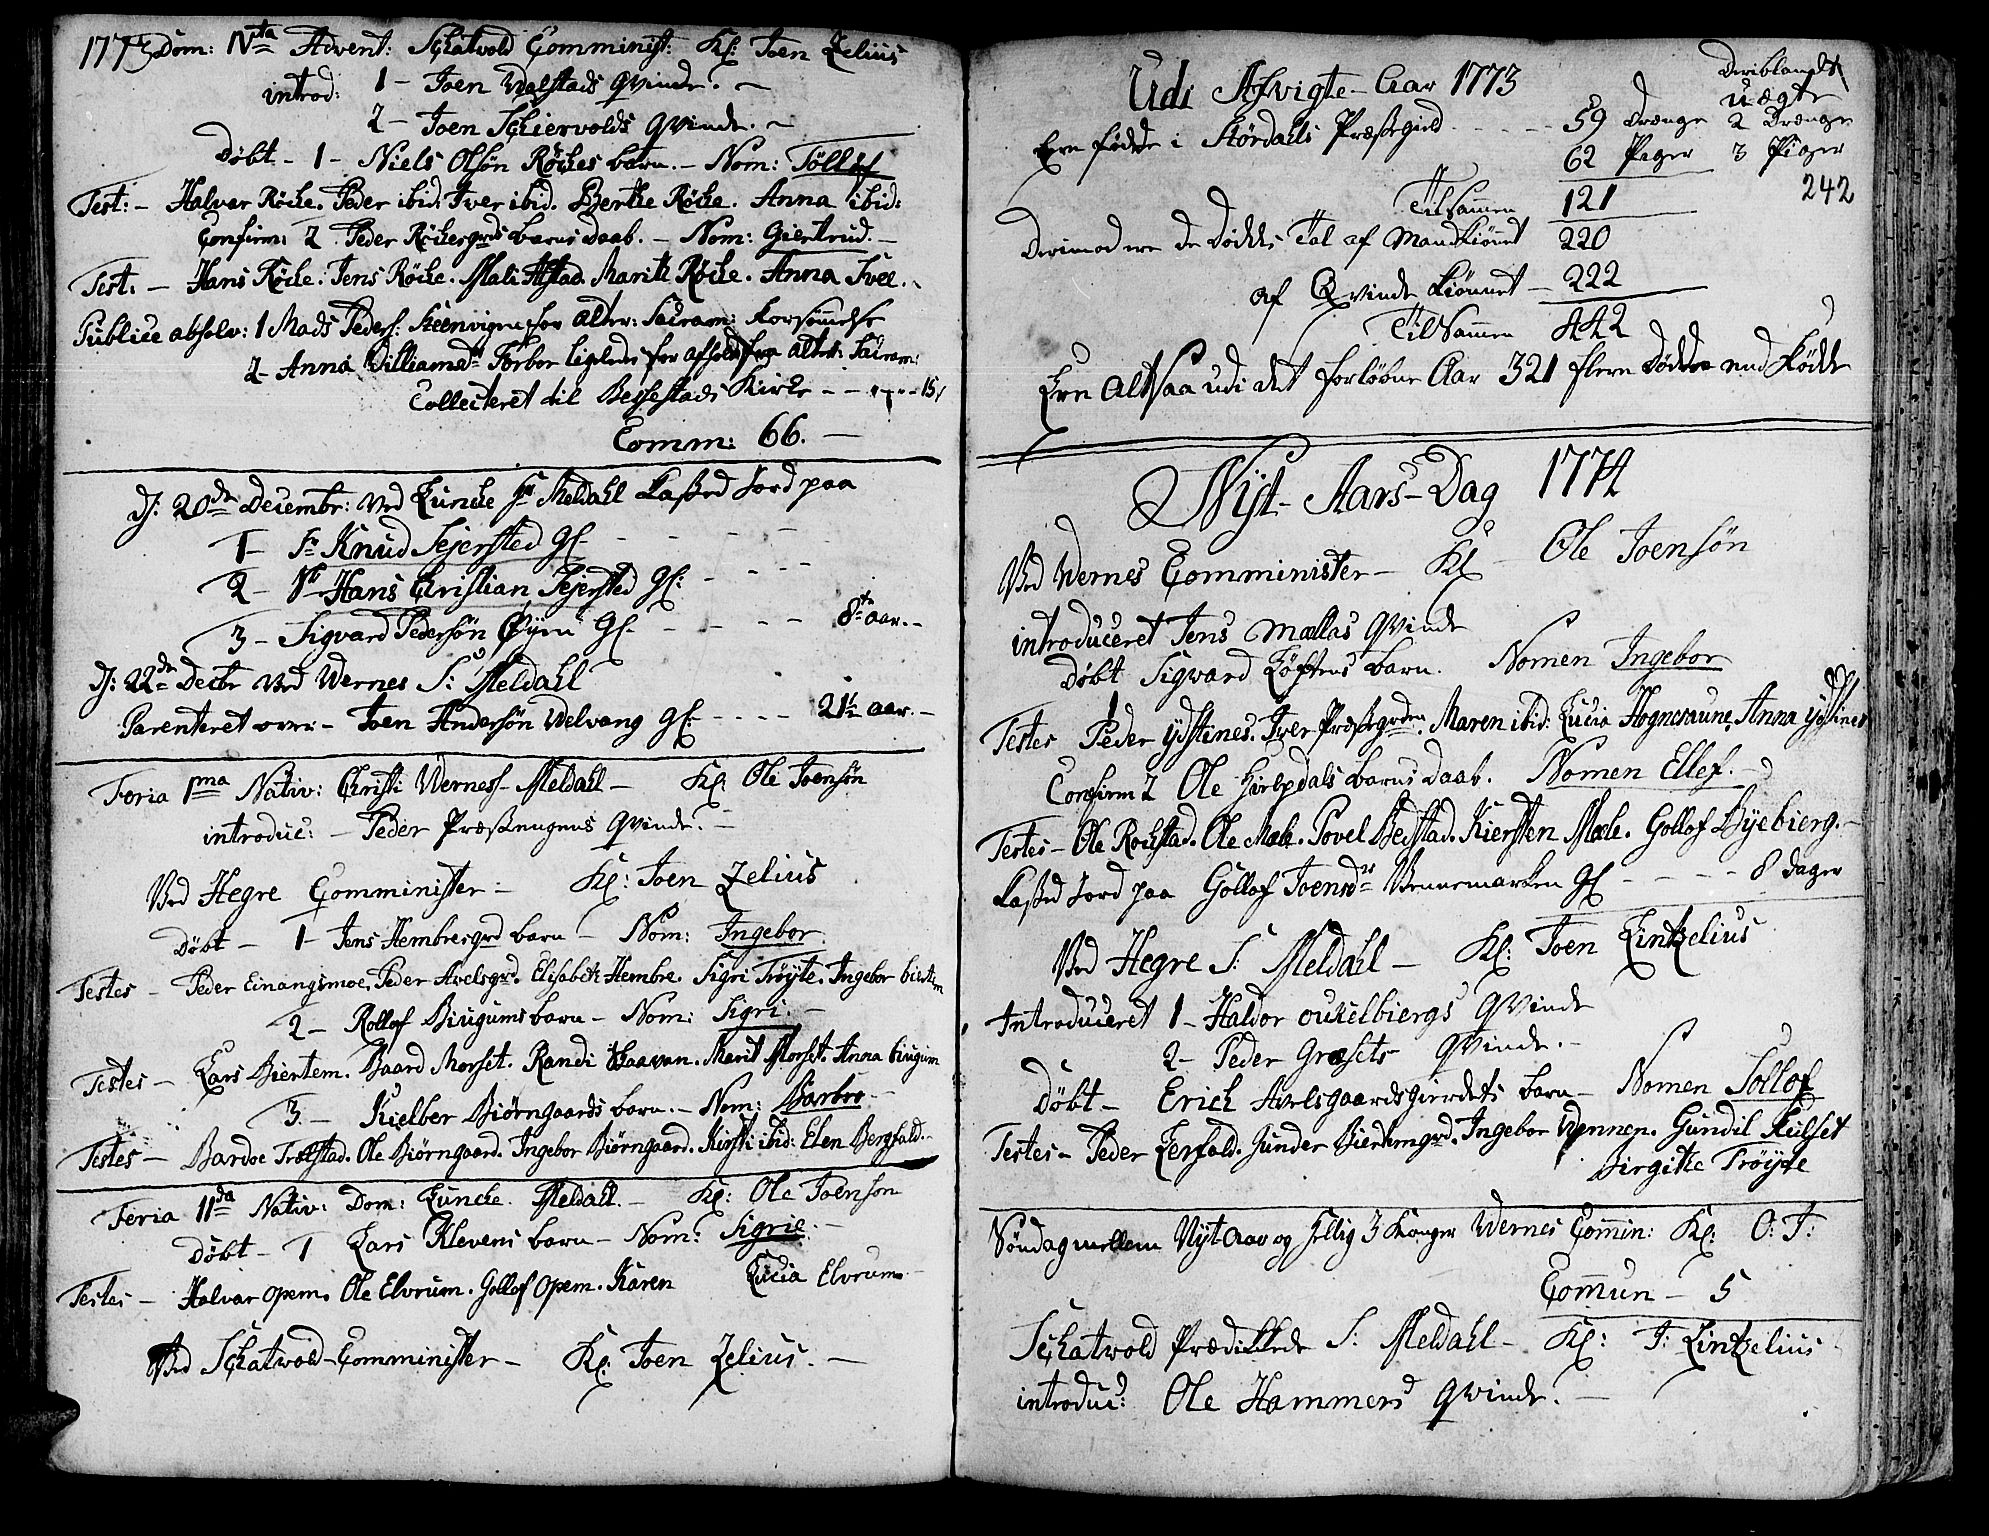 1773 Dom: IVta Advent: Schatvold Comminist: Kl: Joen Zelius
introd: 1 - Joen Welstads Qvinde. -
2 - Joen Schiervolds Qvinde. -
Døbt - 1 - Niels Olsøn Røckes barn. - Nom: Tølløf
Test: - Halvar Røcke. Peder ibid: Iver ibid. Berthe Røcke. Anna ibid:
Confirm: 2 Peder Röckegrds barns daab. - Nom: Giertrud. -
Test. - Hans Røcke. Jens Røcke. Mali Alstad. Marith Røcke. Anna
Publice absolv: 1 Mads Peders: for Alter: Sacram: Forsømmelse
2 - Anna Williamsdr Forbor ligeledes for afhold fra Alter: Sacram:
Collecteret til Bessestads Kirke - - - 15
Comm: 66. -
D: 20de Decembr: ved Luncke Hr Meldahl Kasted Jord paa
1 - Sr Knud Sejersted Gl - - - -
2 - Sr Hans Christian Sejersted Gl: - - - -
3 - Sigvard Pedersön Øyen Gl. - - - - 8te aar. -
D: 22de Decbr ved Wernes S: Meldahl
Parenteret over - Joen Andersön Welvang Gl: - - - - 21½ aar. -
Feria 1ma Nativ: Christi Wernes - Meldahl - Kl: Ole Joensön
introduc: - Peder Præstengens Qvinde. -
Ved Hegre Comminister - Kl: Joen Zelius
Døbt - 1 - Jens Hembregrd barn - Nom: Ingebor.
Testes - Peder Einangsmoe. Peder Avelsgrd. Elisabeth Hembre. Sigri Trøyte. Ingebor biertem
2 - Rollof Biugums barn - Nom: Sigri. -
Testes - Lars Biertem. Baard Morset. Randi Marit Morset. Anna biugum
3. - Kielber Biörngaards barn. - Nom: Barbro -
Testes - Bardoe Trøtstad. Ole Biörngaard. Ingebor Biörngaard. Kirsti ibid: Elen Bergfald. -
Feria IIda Nativ: Dom: Luncke. Meldahl. - Kl: Ole Joenson
Døbt - 1 Lars Klevens barn - Nom: Sigrie. -
Testes - Halvar Opem. Ole Elvrum. Gollof Opem. Karen Lucia Elvrum -
Ved Schatwold - Comminister - Kl: Joen Zelius. -
Udi Afvigte Aar 1773
Deriblandt
uægte
Ere fødde i Stördahls Præstegield - - - - 59 Drenge 2 Drenge
62 Piger 3 Piger
Tilsammen 121
242
Derimod ere de Döddes Tal af Mandkiønnet 220
af Qvinde Kiønnet - 222
Tilsammen 442
Ere Altsaa udi det forløbne Aar 321 flere Dødde end Fødde
Nyt - Aars - Dag 1774
Ved Wernes Comminister - Kl - Ole Joensön
introduceret Jens Mællas Qvinde
Døbt Sigvard Löftens barn. Nomen Ingebor
Testes Peder ydstines. Iver Præstgrden. Maren ibid: Lucia Hognesaune, Anna ydstines
Confirm 2 Ole barns daab. Nomen Ellef. -
Testes - Ole Rochstad. Ole Mæle. Povel Bedstad. Kiersten Mæle. Gollof Byebierg. -
Kasted Jord paa Gollof Joensdr Wennemarken Gl - - - - 8 dager
Ved Hegre S: Meldahl - Kl: Joen Lintzelius
Introduceret 1 - Haldor oukelbiergs Qvinde
2 - Peder Græsets Qvinde. -
Døbt - Erich Avelsgaardsgierdets barn - Nomen Tollof
Testes - Peder Lerfald. Gunder Biertemgrd. Ingebor Wennen. Gundil Kulset
Birgitte Trøyte
Søndag mellem Nyt Aar og Hellig 3 Konger Wernes Commin: Kl: O: J:
Commun - 5
Schatwold Prædikkede S: Meldahl - Kl: J: Lintzelius
introduc: Ole Hammers Qvinde. -